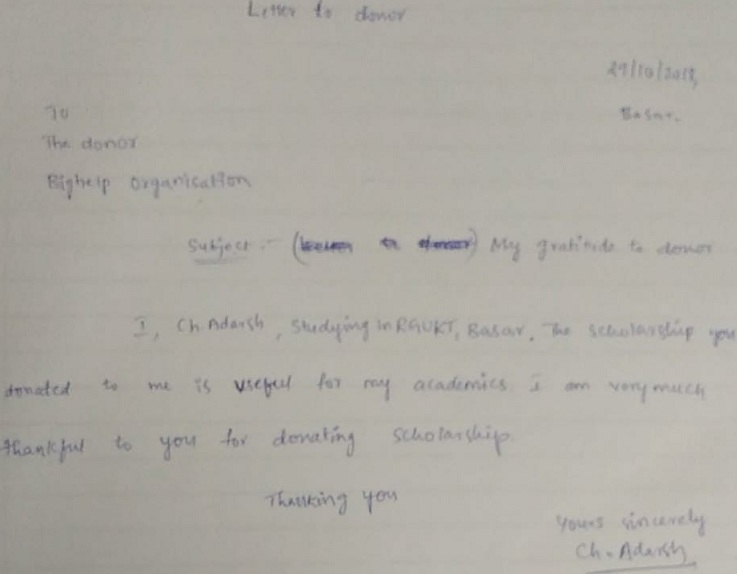 Letter to donor
29/10/2018,
Basar.
To
The donor
Bighelp Organisation
Subject :- (letter to donor) My gratitude to donor
I, Ch. Adarsh, Studying in RGUKT, Basar. The scholarship you
donated to me is useful for my academics I am very much
thankful to you for donating scholarship.
Thanking you
Yours sincerely
Ch. Adarsh